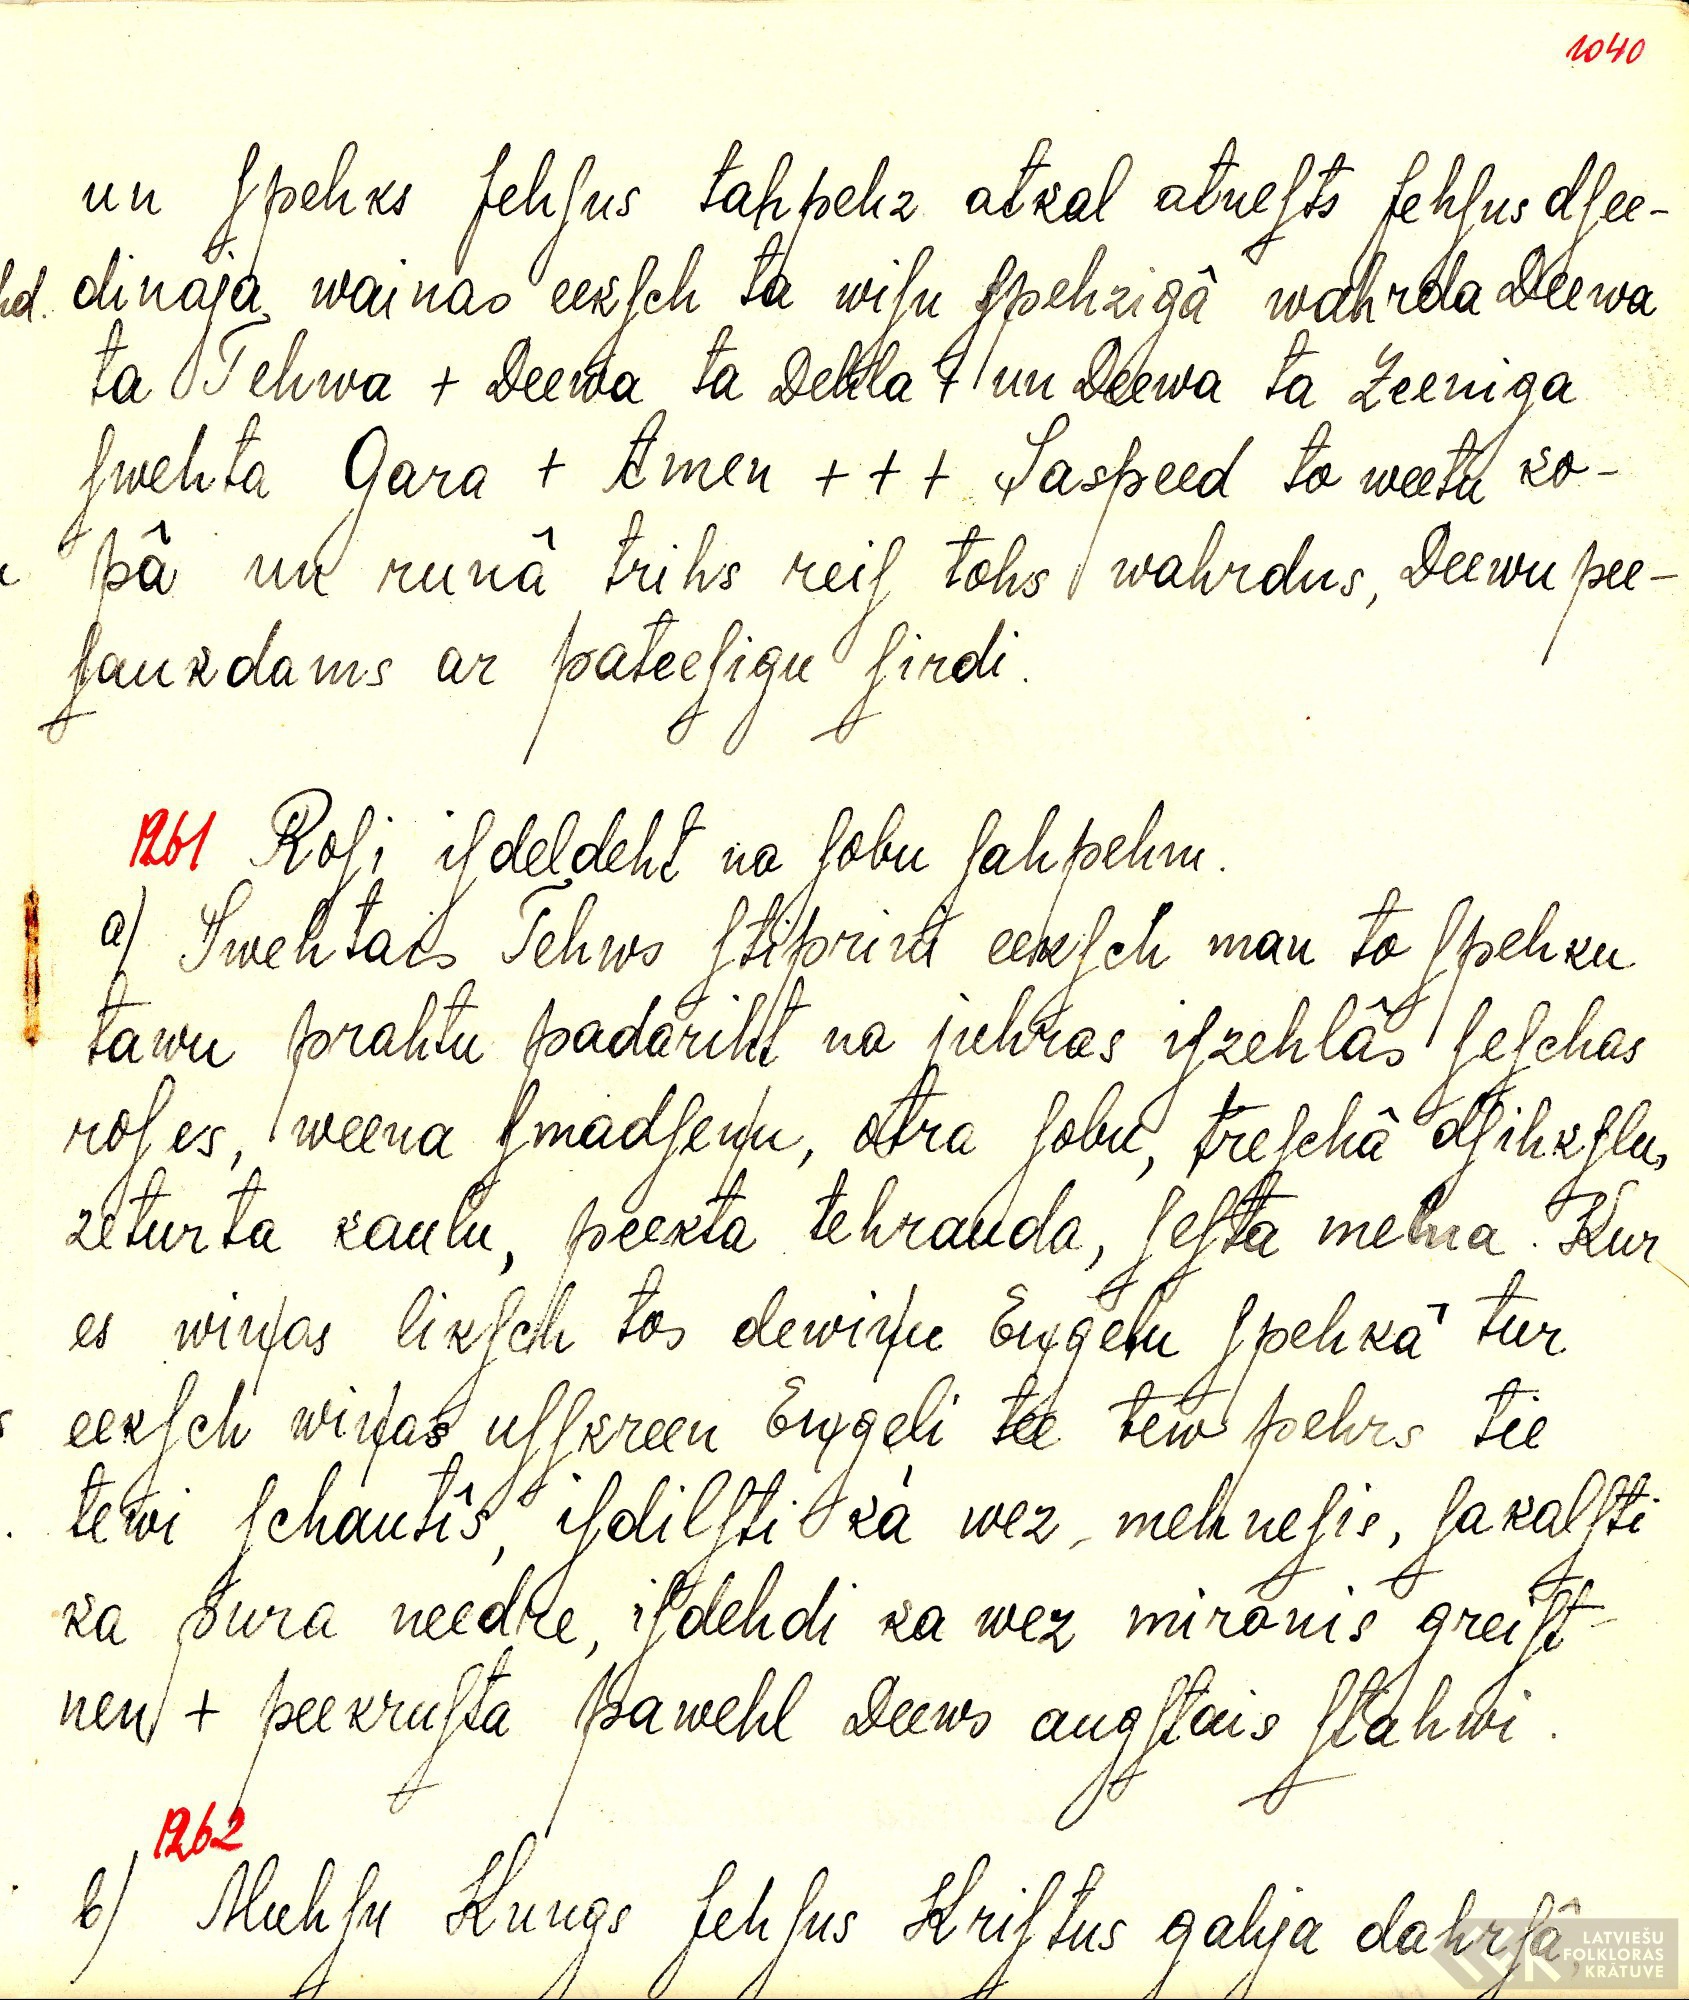 1040
un ſpehks Jehſus tahpehz atkal atneſts Jehſus dſee-
dinaja wainas eekſch ta wiſu ſpehzigâ wahrda Deewa
ta Tehwa + Deewa ta Dehla + un Deewa ta Zeeniga
ſwehta Gara + Amen + + + Saspeed to weetu ko-
pâ un runâ trihs reiſ tohs wahrdus, Deewu pee-
ſaukdams ar pateeſigu ſirdi.
1261 Roſi iſdeldeht no ſobu ſahpehm.
a) Swehtais Tehws ſtiprini eekſch man to ſpehku
tawu prahtu padariht no juhras iſzehlâs ſeſchas
roſes, weena ſmadſeņu, otra ſobu, treſchâ dſihkſlu,
zeturta kaulu, peekta tehrauda, ſeſta melna. Kur
es wiņas likſch tos dewiņu Eņgeļu ſpehkâ tur
eekſch wiņas uſſkreen Eņgeļi tee tew pehrs tie
tewi ſchautîs, iſdilſti kà wez mehneſis, ſakalſti
ka pura needre, iſdehdi ka wez mironis greiſt-
nen + peekruſta pawehl Deews augſtais ſtahwi.
1262
b) Muhſu Kungs Jehſus Kriſtus gahja dahrſâ,
LATVIEŠU
FOLKLORAS
KRĀTUVE